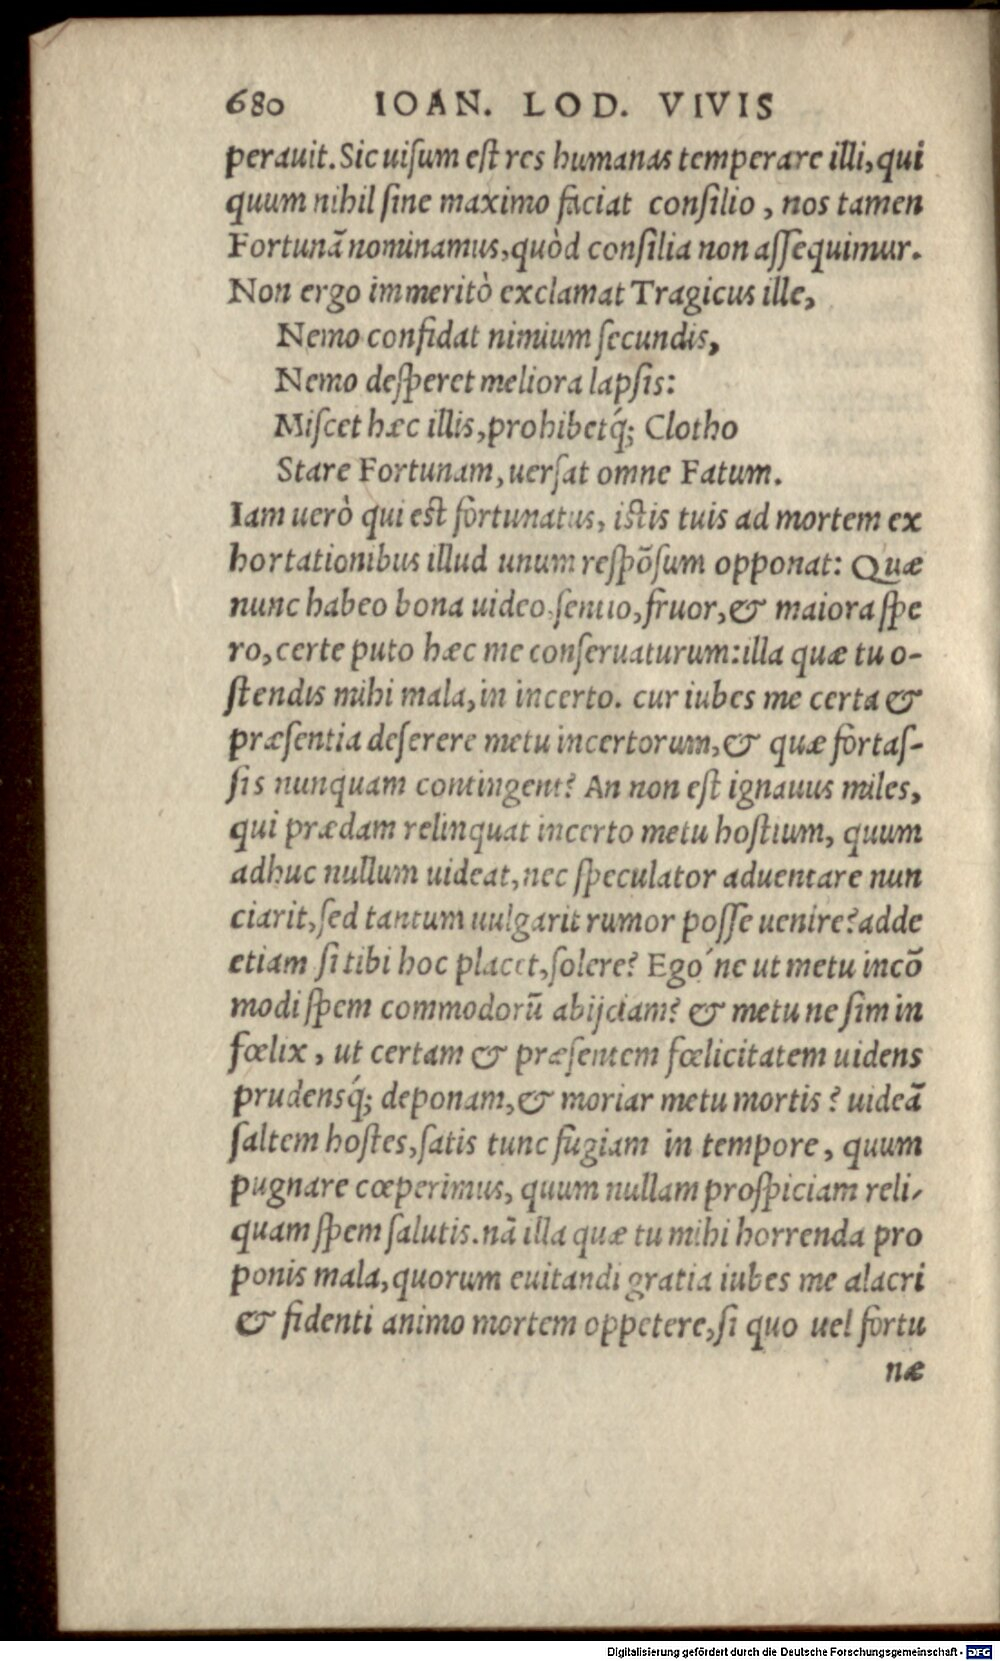 680 IOAN. LOD. VIVIS
perauit. Sic uiſum eſt res humanas temperare illi, qui
quum nihil ſine maximo faciat conſilio, nos tamen
Fortunã nominamus, quòd conſilia non aſſequimur.
Non ergo immeritò exclamat Tragicus ille,
Nemo confidat nimium ſecundis,
Nemo deſperet meliora lapſis:
Miſcet hæc illis, prohibetq́; Clotho
Stare Fortunam, uerſat omne Fatum.
Iam uerò qui eſt fortunatus, iſtis tuis ad mortem ex
hortationibus illud unum reſpõſum opponat: Quæ
nunc habeo bona uideo, ſentio, fruor, & maiora ſpe
ro, certe puto hæc me conſeruaturum: illa quæ tu o-
ſtendis mihi mala, in incerto. cur iubes me certa &
præſentia deſerere metu incertorum, & quæ fortaſ-
ſis nunquam contingent? An non eſt ignauus miles,
qui prædam relinquat incerto metu hoſtium, quum
adhuc nullum uideat, nec ſpeculator aduentare nun
ciarit, ſed tantum uulgarit rumor poſſe uenire? adde
etiam ſi tibi hoc placet, ſolere? Ego´ne ut metu incõ
modi ſpem commodorũ abijciam? & metu ne ſim in
fœlix, ut certam & præſentem fœlicitatem uidens
prudensq́; deponam, & moriar metu mortis? uideã
ſaltem hoſtes, ſatis tunc fugiam in tempore, quum
pugnare cœperimus, quum nullam proſpiciam reli-
quam ſpem ſalutis. nã illa quæ tu mihi horrenda pro
ponis mala, quorum euitandi gratia iubes me alacri
& fidenti animo mortem oppetere, ſi quo uel fortu
næ
Digitalisierung gefördert durch die Deutsche Forschungsgemeinschaft - DFG